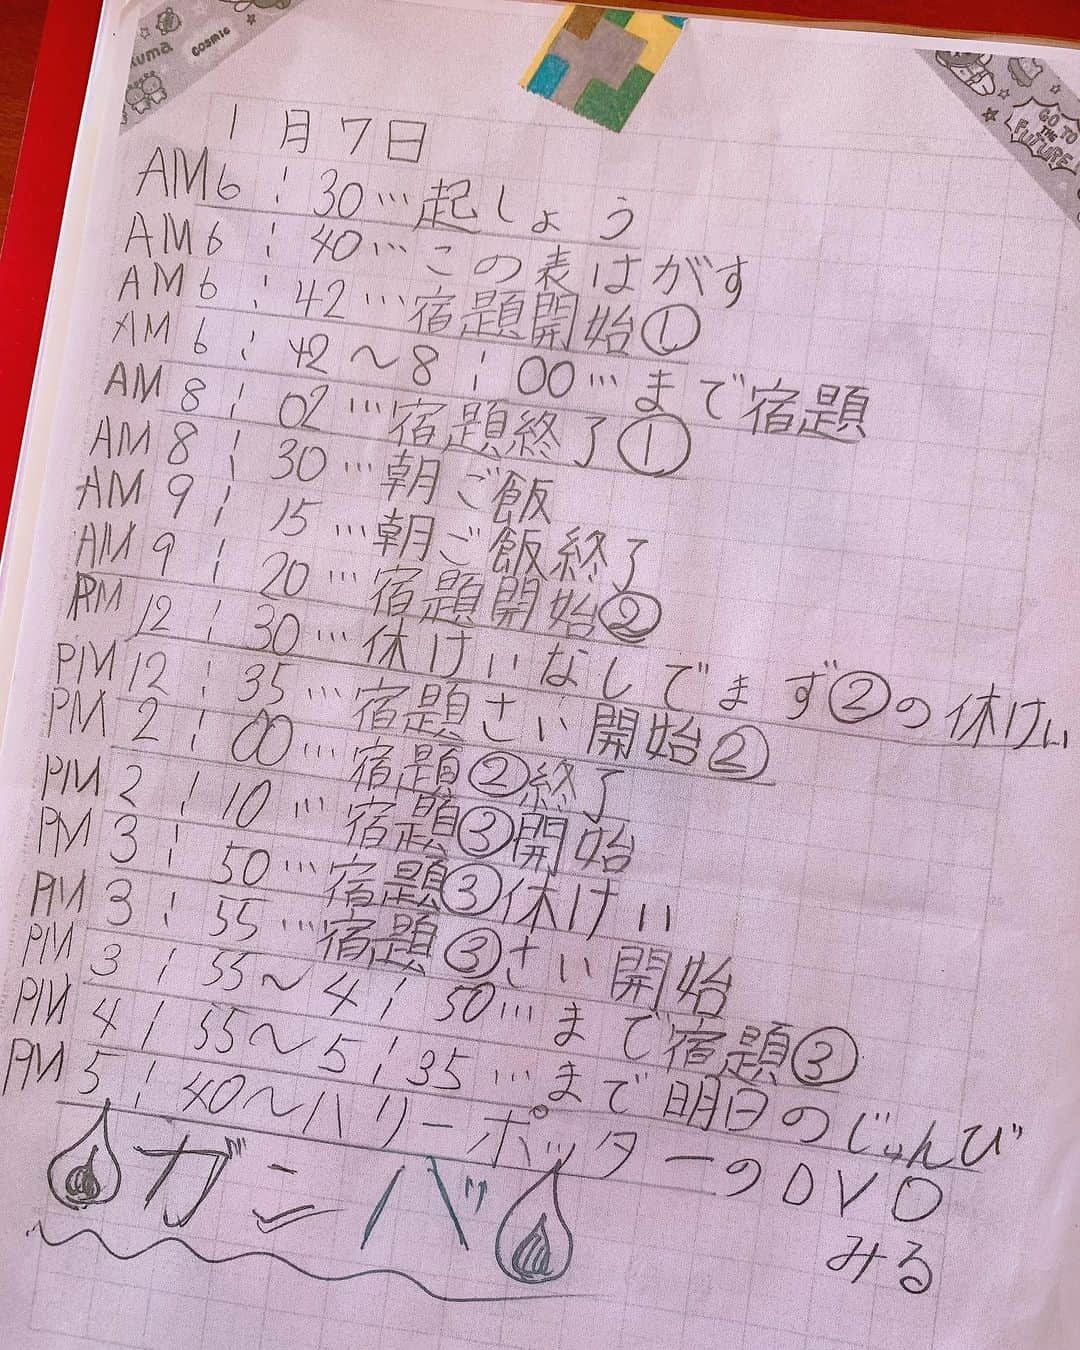 kuma
COSMIC
GO TO
THE
FUTURE
1月7日
AM6:30…起しょう
AM6:40…この表はがす
AM6:42…宿題開始①
AM6:42～8:00…まで宿題
AM8:02…宿題終了①
AM8:30…朝ご飯
AM9:15…朝ご飯終了
AM9:20…宿題開始②
PM12:30…休けいなしでまず②の休けい
PM12:35…宿題さい開始②
PM2:00…宿題②終了
PM2:10…宿題③開始
PM3:50…宿題③休けい
PM3:55…宿題③さい開始
PM3:55～4:50…まで宿題③
PM4:55～5:35…まで明日のじゅんび
PM5:40～ハリーポッターのDVD
みる
ガンバ